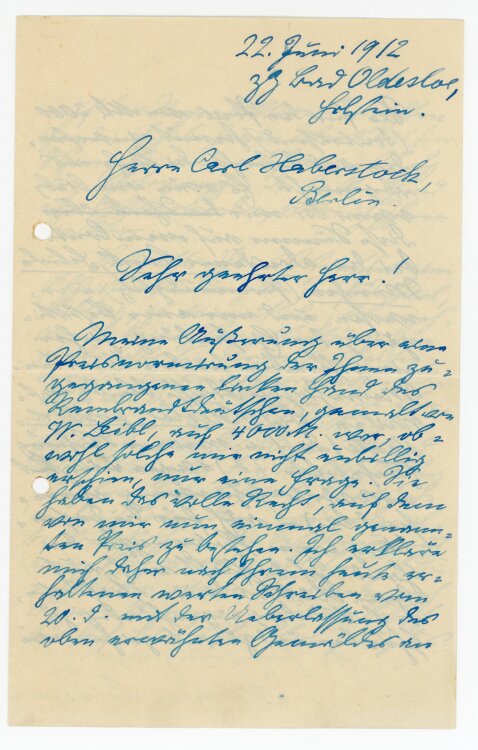 22. Juni 1912
zZ Bad Oldesloe,
Holstein.
Herrn Carl Haberstock,
Berlin.
Sehr geehrter Herr!
Meine Äußerung über eine
Preisnormirung der Ihnen zu-
gegangenen linken Hand des
Rembrandtdeutschen, gemalt von
W. Leibl, auf 4000M. war, ob-
wohl solche mir nicht unbillig
erschien, nur eine Frage. Sie
haben das volle Recht, auf dem
von mir nun einmal genann-
ten Preis zu bestehen. Ich erkläre
mich daher nach Ihrem heute er-
haltenen werten Schreiben vom
20. d. mit der Ueberlassung des
oben erwähnten Gemäldes an